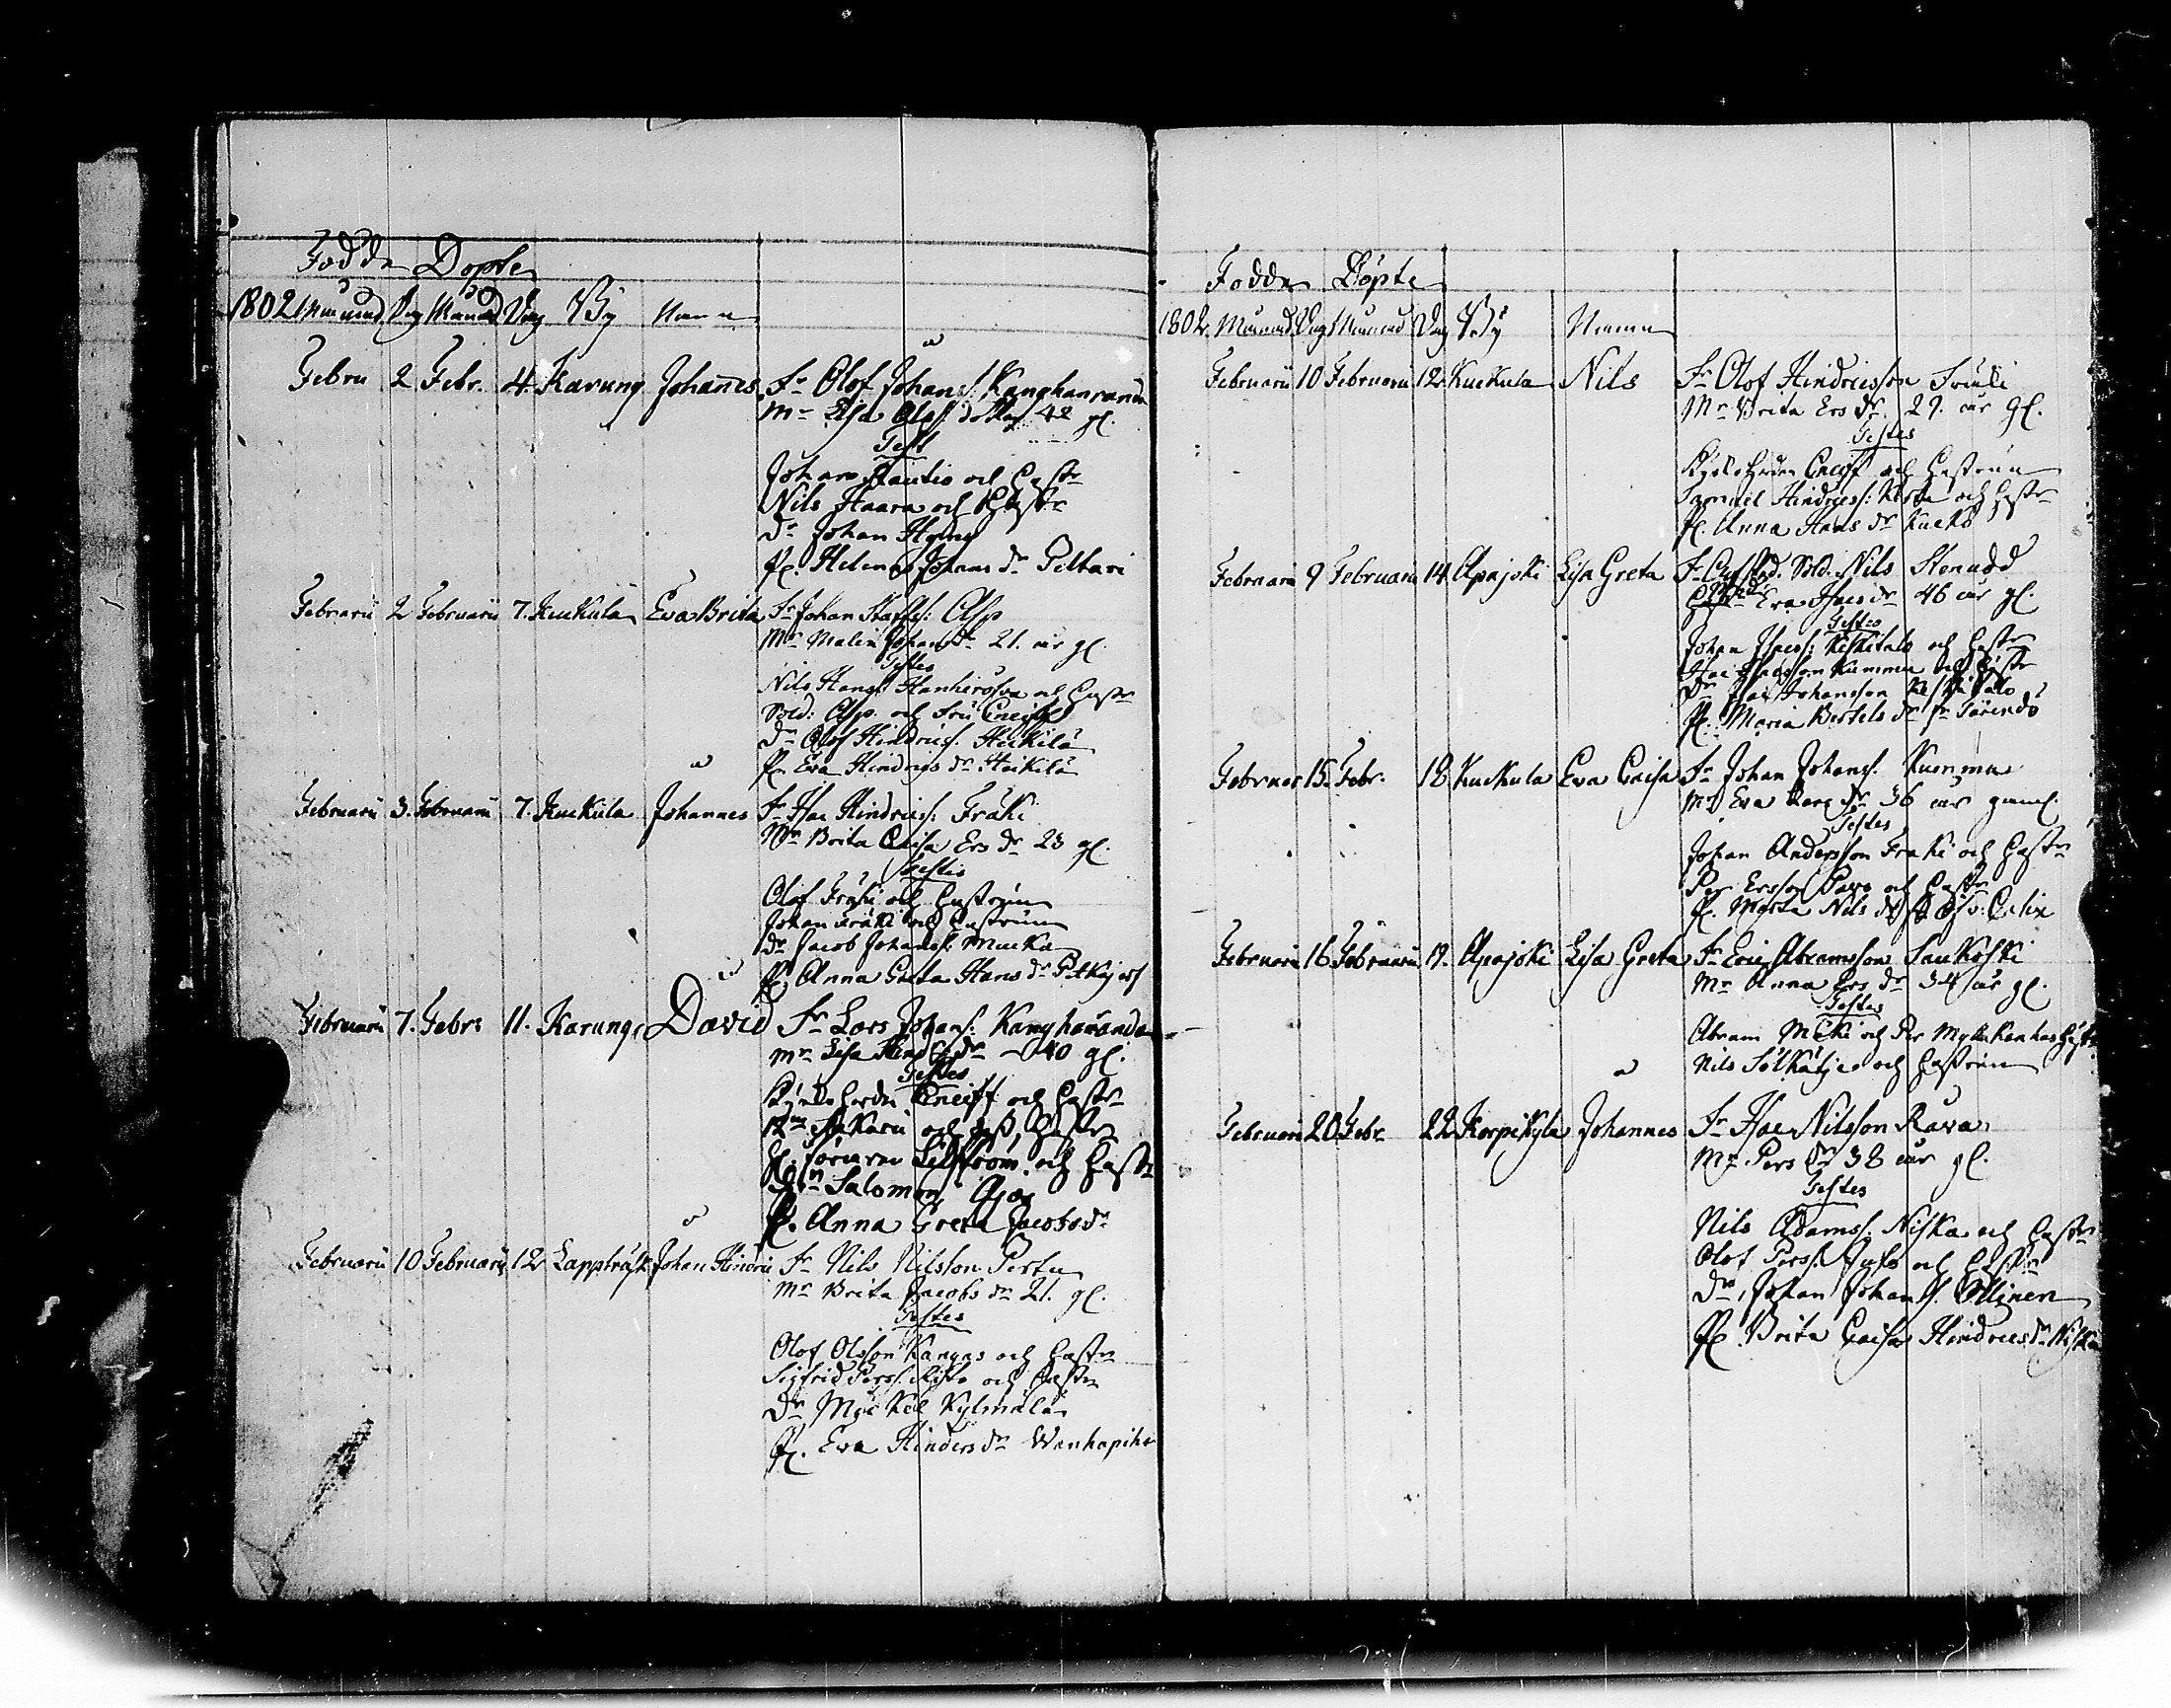 Födde Döpte
1802 Månad Dag Månad Dag By Namn
Febru 2 Febr. 4. Karung Johannes Fr Olof Johanss: Kanghanranda
Mr Lisa Olofs dotter 42 gl.
Test
Johan Rautio och Hustr
Nils Haara och Hustr
Dr Johan
P. Helena Johans dr Peltari
Februarii 2 Februarii 7. Kuckula Eva Brita Fr Johan Staffss: Asp
Mr Malin Johans dr 21. år gl.
Testes
Nils Hanss och Hustr
Sold: Asp. och fru Cneiff
Dr Olof Hindricss. Heikilä
P. Eva Hindrics dr Heikilä
Februarii 3. Februarii 7. Kuckula Johannes Fr Isac Hindricss: Fräki
Mr Brita Caisa Ers dr 23 gl.
Testes
Olof Fräki och Hustrun
Johan Fräki och Hustrun
Dr Jacob Johanss. Mucka
P. Anna Greta Hans dr
Februarii 7. Febr: 11. Karungi David Fr Lars Johanss: Kanghanranda
Mr Lisa dr 40 gl.
Testes
Kyrkoherden Cneiff och Hustr
och dess Hustr
och Hustr
Dr Salomon
P. Anna Greta Jacobs dr
Februarii 10 Februarii 12 Lappträsk Johan Hindric Fr Nils Nilsson Pertu
Mr Brita Jacobs dr 21. gl.
Testes
Olof Olsson Kangas och Hustr
Sigfrid Perss. och Hustr
Dr Mickel Kylmälä
P. Eva Hinders dr Wanhapiha
Födde Döpte
1802. Månad Dag Månad Dag By Namn
Februarii 10 Februarii 12 Kuckula Nils Fr Olof Hindricsson Fräki
Mr Brita Ers dr. 29. år gl.
Testes
Kyrkoherden Cneiff och Hustrun
Samuel Hindricss: och Hustr
P. Anna Hans dr
Februarii 9 Februarii 14. Apajoki Lisa Greta Fr Sold. Nils Stenudd
Eva Isacs dr 46 år gl.
Testes
Johan Isacss: Keskitalo och Hustr
Isac Isacsson Kummu och Hustr
Dr Isac Johansson Keskitalo
P. Maria Bertels dr fr Tärendö
Februar 15. Febr. 18. Kuckula Eva Caisa Fr Johan Johanss. Kummu
Mr Eva Lars dr 36 år gaml.
Testes
Johan Andersson Fräki och Hustr
Per Ersson Pavo och Hustr
P. Marta Nils dr
Februarii 16 Februarii 19. Apajoki Lisa Greta Fr Eric Abramsson Laukoski
Mr Anna Ers dr 34 år gl.
Testes
Abram Mäki och Per
Nils och Hustrun
Februarii 20. Febr 22 Korpikylä Johannes Fr Isac Nilsson Rava
Mr Pers dr 38 år gl.
Testes
Nils Adamss. Niska och Hustr
Olof Perss. Juto och Hustr
Dr, Johan Johanss. Ollinen
P. Brita Caisa Hindrics dr Niska